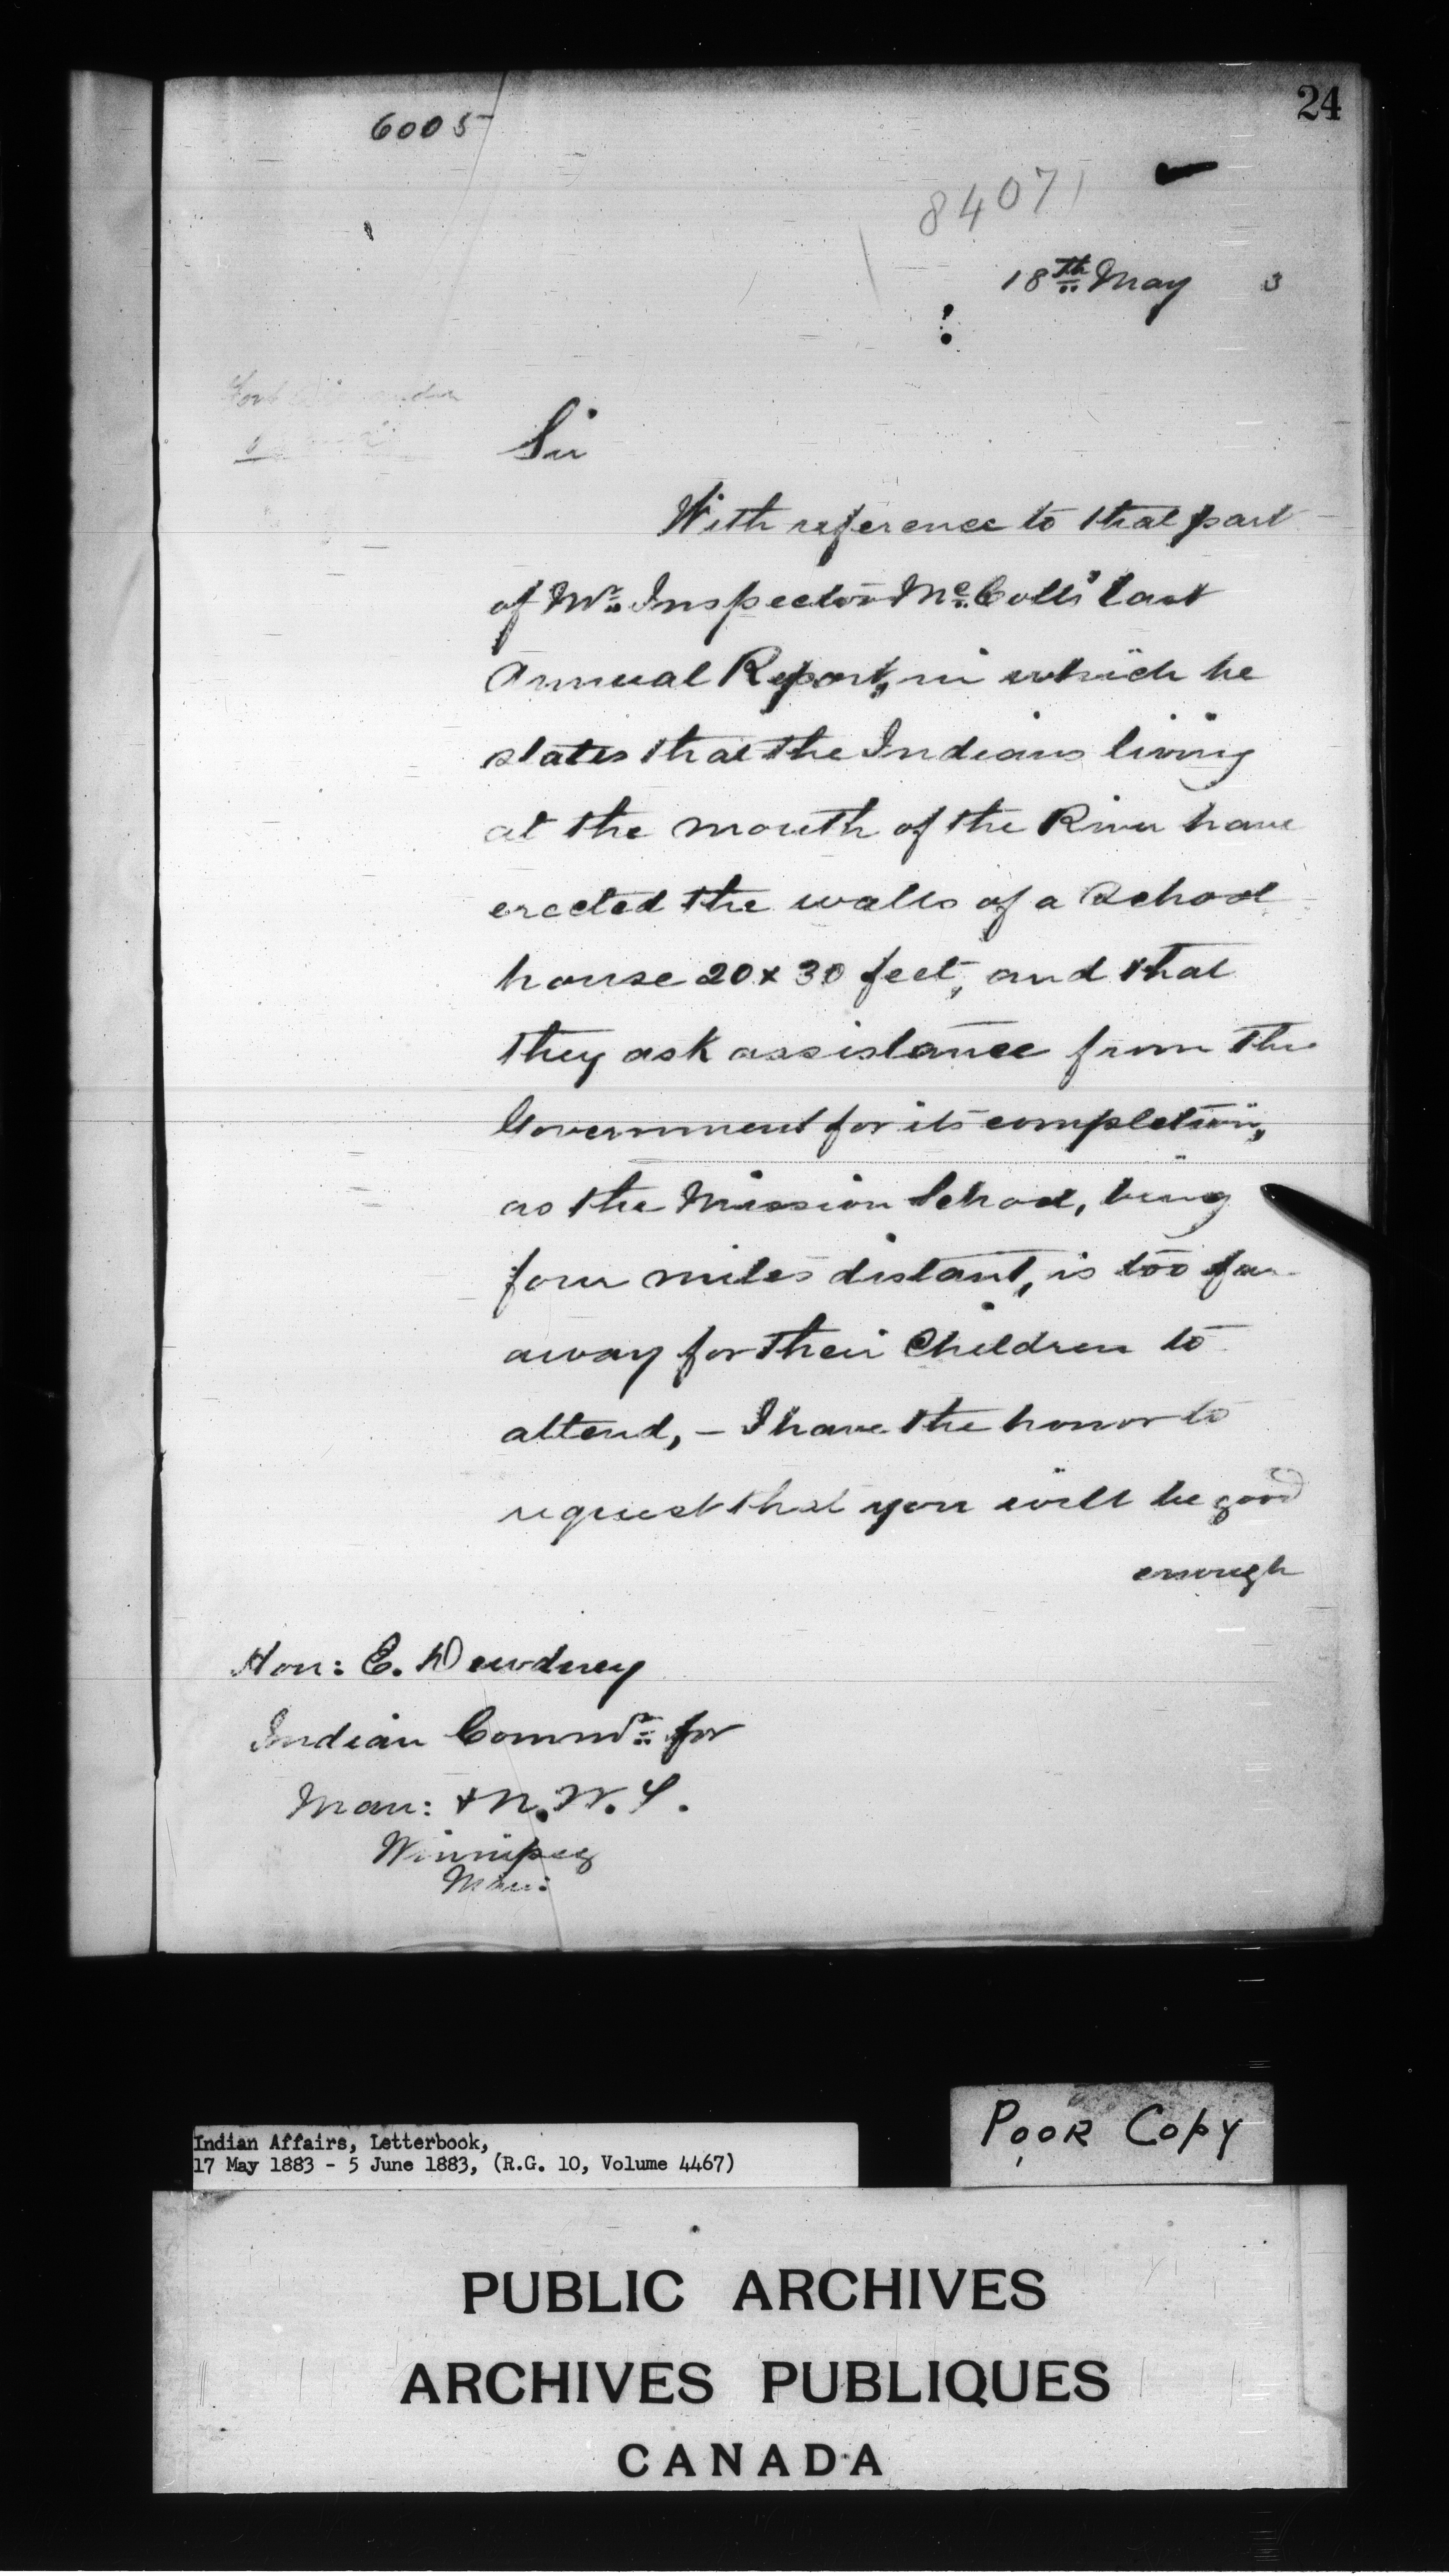 24
6005
84071
18th May 3
Fort
Sir
With reference to that part
of Mr. Inspector McColl's last
Annual Report, in which he
states that the Indians living
at the mouth of the River have
erected the walls of a School
house 20 x 30 feet, and that
they ask assistance from the
Government for its completion,
as the Mission School, being
four miles distant, is too far
away for their Children to
attend, – I have the honor to
request that you will be good
enough
Hon: E. Dewdney
Indian Commr. for
Man: & N.W.T.
Winnipeg
Man:
Indian Affairs, Letterbook,
17 May 1883 - 5 June 1883, (R.G. 10, Volume 4467)
POOR COPY
PUBLIC ARCHIVES
ARCHIVES PUBLIQUES
CANADA